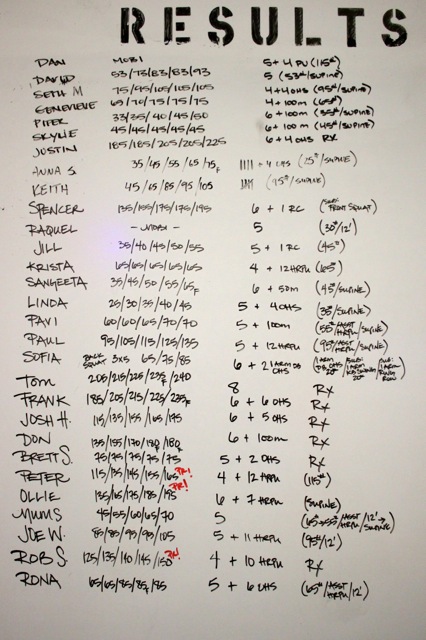 RESULTS
DAN MOBI 5 + 4 PU (115#)
DAVID 53/73/83/83/93 5 (53#/SUPINE)
SETH M 75/95/105/105/105 4+4 OHS (95#/SUPINE)
GENEVIEVE 65/70/75/75/75 4+100m (65#)
PIPER 33/35/40/45/50 6+100m (35#/SUPINE)
SKYLIE 45/45/45/45/45 6+100 m (45#/SUPINE)
JUSTIN 185/185/205/205/225 6+4 OHS RX
ANNA S. 35/45/55/65/75F |||| + 4 OHS (25#/SUPINE)
KEITH 45/65/85/95/105 (95#/SUPINE)
SPENCER 135/155/175/175/195 6 + 1 RC (SUB: FRONT SQUAT)
RAQUEL 5 (30#/12')
JILL 35/40/45/50/55 5 + 1 RC (45#)
KRISTA 65/65/65/65/65 4 + 12 HRPU (65#)
SANGEETA 35/45/50/55/65F 6 + 50m (45#/SUPINE)
LINDA 25/30/35/40/45 5 + 4 OHS (35#/SUPINE)
PAVI 60/60/65/70/70 5 + 100m (55#/ASST HRPU/SUPINE)
PAUL 95/105/115/125/135 5 + 12 HRPU (95#/ASST HRPU/SUPINE)
SOFIA BACK SQUAT 3x5 65/75/85 6 + 2 1 ARM DB OHS
TOM 205/215/225/235F/240 8 RX
FRANK 185/205/215/225/235F 6 + 6 OHS RX
JOSH H. 115/135/155/165/175 6 + 5 OHS RX
DON 135/155/170/180F/180F 6 + 100m RX
BRETT S. 75/75/75/75/75 5 + 2 OHS RX
PETER 115/135/145/155/165 PR! 4 + 12 HRPU (115#)
OLLIE 135/165/175/185/195 PR! 6 + 7 HRPU (SUPINE)
MUMS 45/55/60/65/70 5
JOE W. 85/85/95/95/105 5 + 11 HRPU (95#/12')
ROB S. 125/135/140/145/150 PR! 4 + 10 HRPU RX
RONA 65/65/85/85F/85 5 + 6 OHS (65#/ASST HRPU/12')